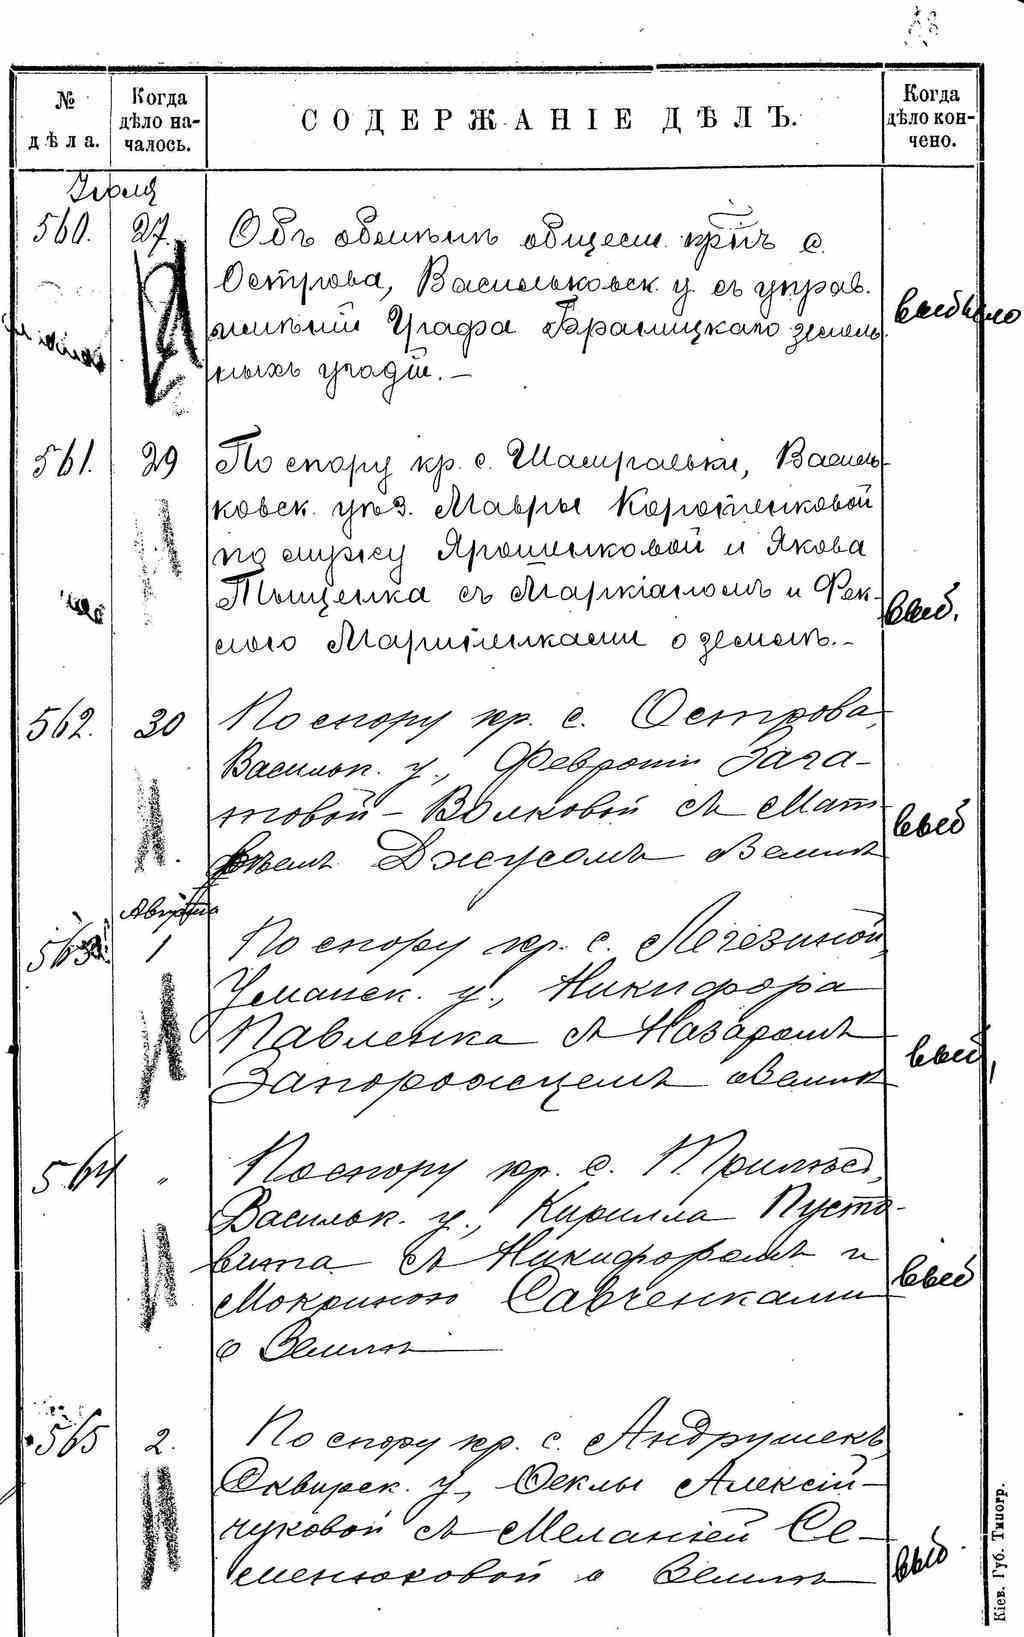 № дѣла.
Когда дѣло началось.
СОДЕРЖАНІЕ ДѢЛЪ.
Когда дѣло кончено.
Іюля
560. 27. Объ обмѣнѣ общест. крⷭ҇тъ с.
Острова, Васильковск. у. съ управ.
имѣній Графа Браницкаго земель-
ныхъ угодій. —
выбыло
561. 29 По спору кр. с. Шамраевки, Василь-
ковск. уѣз. Мавры Коротенковой
по мужу Ярошенковой и Якова
Тыщенка съ Маркіаномъ и Фек-
лою Мартыненками о землѣ. —
выб.
562. 30 По спору кр. с. Острова,
Васильк. у., Февроніи Зага-
товой - Волковой съ Мат-
вѣемъ Джусомъ о землѣ
выб
Августа
563. 1 По спору кр. с. Легезиной,
Уманск. у., Никифора
Павленка съ Назаромъ
Запорожцемъ о землѣ
выб,
564 " По спору кр. с. Трилѣсъ,
Васильк. у., Кирилла Пусто-
вита съ Никифоромъ и
Мокриною Савченками
о землѣ
выб
565 2. По спору кр. с. Андрушекъ,
Сквирск. у., Феклы Алексій-
чуковой съ Меланіей Се-
менюковой о землѣ
выб
Кіев. Губ. Типогр.